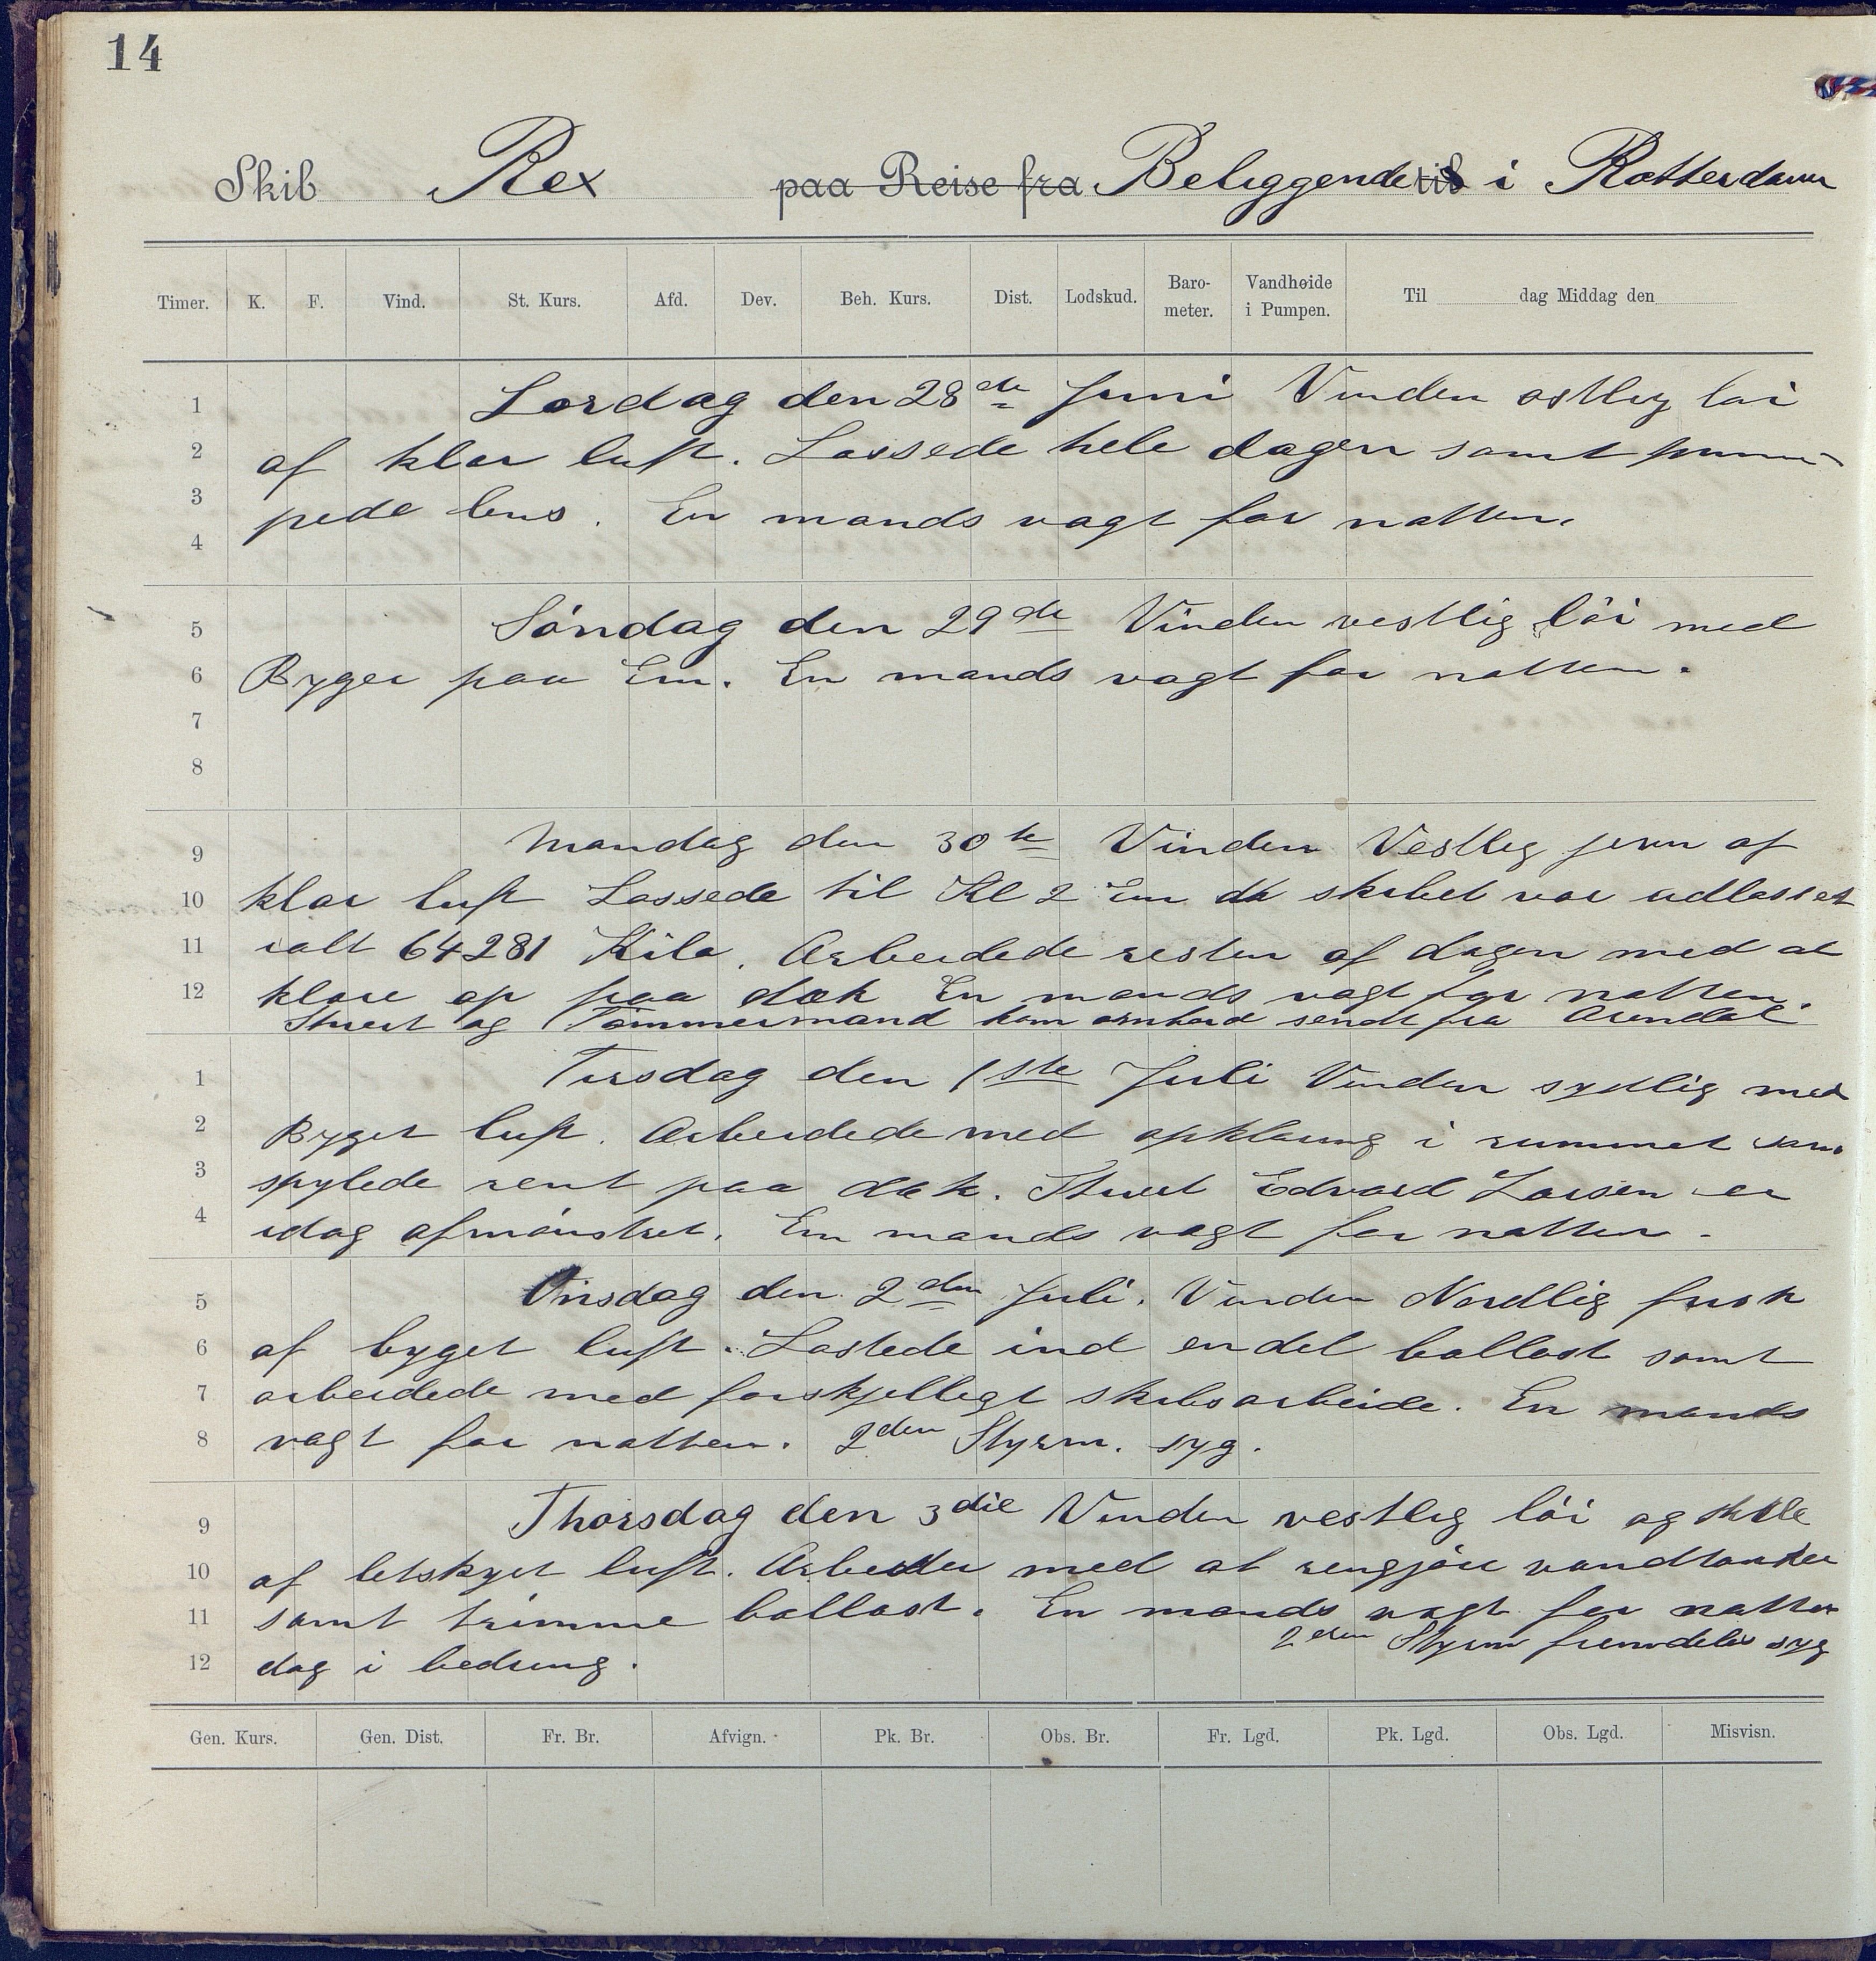 14
Skib Rex paa Reise fra Beliggende til i Rotterdam
Timer. K. F. Vind. St. Kurs. Afd. Dev. Beh. Kurs. Dist. Lodskud. Baro-meter. Vandhøide i Pumpen. Til dag Middag den
1 Lørdag den 28de Juni Vinden østlig løi
2 af klar luft. Lossede hele dagen samt pum-
3 pede lens. En mands vagt for natten.
4
5 Søndag den 29de Vinden vestlig løi med
6 Byger paa Em. En mands vagt for natten.
7
8
9 Mandag den 30te Vinden Vestlig jevn af
10 klar luft Lossede til Kl 2 Em da skibet var udlosset
11 ialt 64281 Kilo. Arbeidede resten af dagen med at
12 klare op paa dæk En mands vagt for natten.
Stuert og Tømmermand kom ombord sendt fra Arendal
1 Tirsdag den 1ste Juli Vinden sydlig med
2 Byget luft. Arbeidede med opklaring i rummet samt
3 spylede rent paa dæk. Stuert Edvard Larsen er
4 idag afmønstret. En mands vagt for natten.
5 Onsdag den 2den Juli. Vinden Nordlig frisk
6 af byget luft. Lastede ind endel ballast samt
7 arbeidede med forskjelligt skibsarbeide. En mands
8 vagt for natten. 2den Styrm. syg.
9 Thorsdag den 3die Vinden vestlig løi og stille
10 af letskyet luft. Arbeider med at rengjøre vandtanker
11 samt trimme ballast. En mands vagt for natten
2den Styrm fremdeles syg
12 dog i bedring.
Gen. Kurs. Gen. Dist. Fr. Br. Afvign. Pk. Br. Obs. Br. Fr. Lgd. Pk. Lgd. Obs. Lgd. Misvisn.